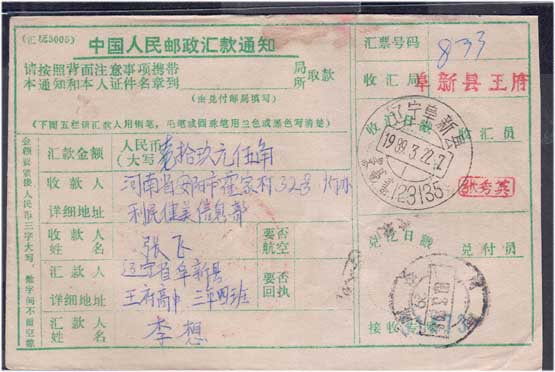 (汇统3005)
中国人民邮政汇款通知
请按照背面注意事项携带
本通知和本人证件名章到 局所 取款
(由兑付邮局填写)
(下阔五栏请汇款人用钢笔，毛笔或圆珠笔用兰色或黑色写清楚)
金额要紧挨人民币三字大写，数字间不留空隙
汇款金额 人民币(大写) 壹拾玖元伍角
收款人详细地址 河南省安阳市霍家村32号
利民健美信息部
收款人姓名 张飞 要否航空
汇款人详细地址 辽宁省阜新县 要否回执
王府高中 三年四班
汇款人姓名 李想
汇票号码 833
收汇局 阜新县王府
收汇日戳 收汇员
辽宁阜新县
1989.3.22.
123135
张秀英
兑讫日戳 兑付员
接收